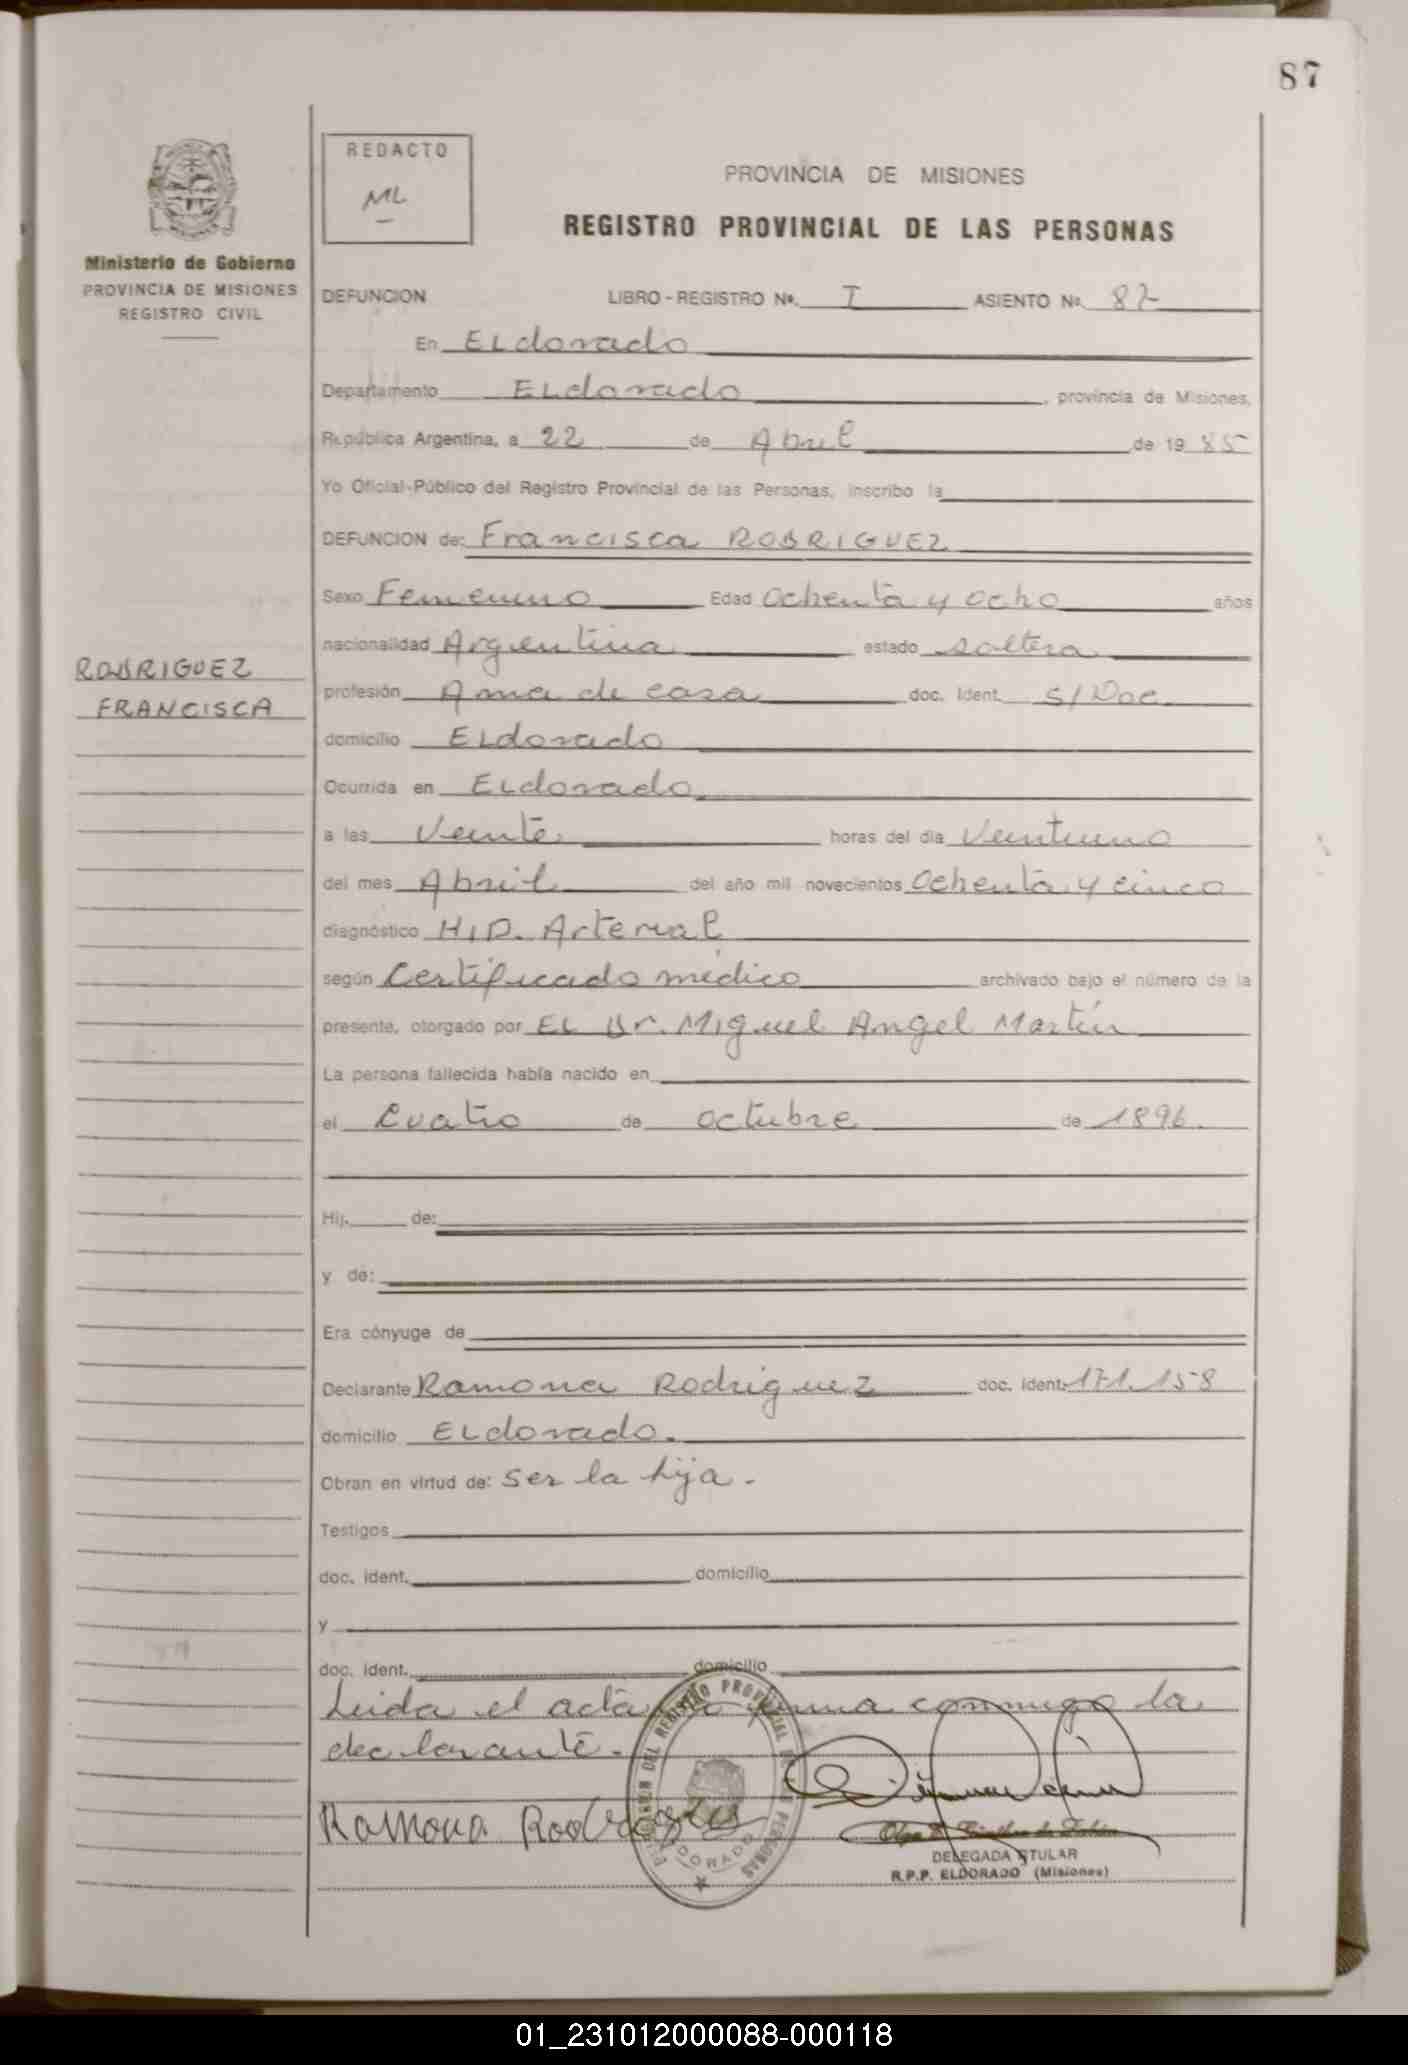 87
REDACTO
ML
Ministerio de Gobierno
PROVINCIA DE MISIONES
REGISTRO CIVIL
PROVINCIA DE MISIONES
REGISTRO PROVINCIAL DE LAS PERSONAS
DEFUNCION LIBRO - REGISTRO Nº. I ASIENTO Nº. 87
En ELdorado
Departamento ELdorado, provincia de Misiones,
República Argentina, a 22 de Abril de 19 85
Yo Oficial-Público del Registro Provincial de las Personas, inscribo la
DEFUNCION de: Francisca RODRIGUEZ
Sexo Femenino Edad Ochenta y ocho años
nacionalidad Argentina estado soltera
RODRIGUEZ
FRANCISCA
profesión Ama de casa doc. Ident. S/Doc.
domicilio ELdorado
Ocurrida en ELdorado
a las Veinte horas del día Veintiuno
del mes Abril del año mil novecientos Ochenta y cinco
diagnóstico H.D. Arterial
según Certificado médico archivado bajo el número de la
presente, otorgado por EL Dr. Miguel Angel Martín
La persona fallecida había nacido en
el Cuatro de octubre de 1896.
Hij. de:
y de:
Era cónyuge de
Declarante Ramona Rodriguez doc. Ident. 171.158
domicilio ELdorado.
Obran en virtud de: Ser la hija.
Testigos
doc. ident. domicilio
y
doc. ident. domicilio
Leida el acta la firma conmigo la
declarante.
Ramona Rodrigues
DELEGADA TITULAR
R.P.P. ELDORADO (Misiones)
DEL REGISTRO PROVINCIAL DE LAS PERSONAS
ELDORADO
01_231012000088-000118